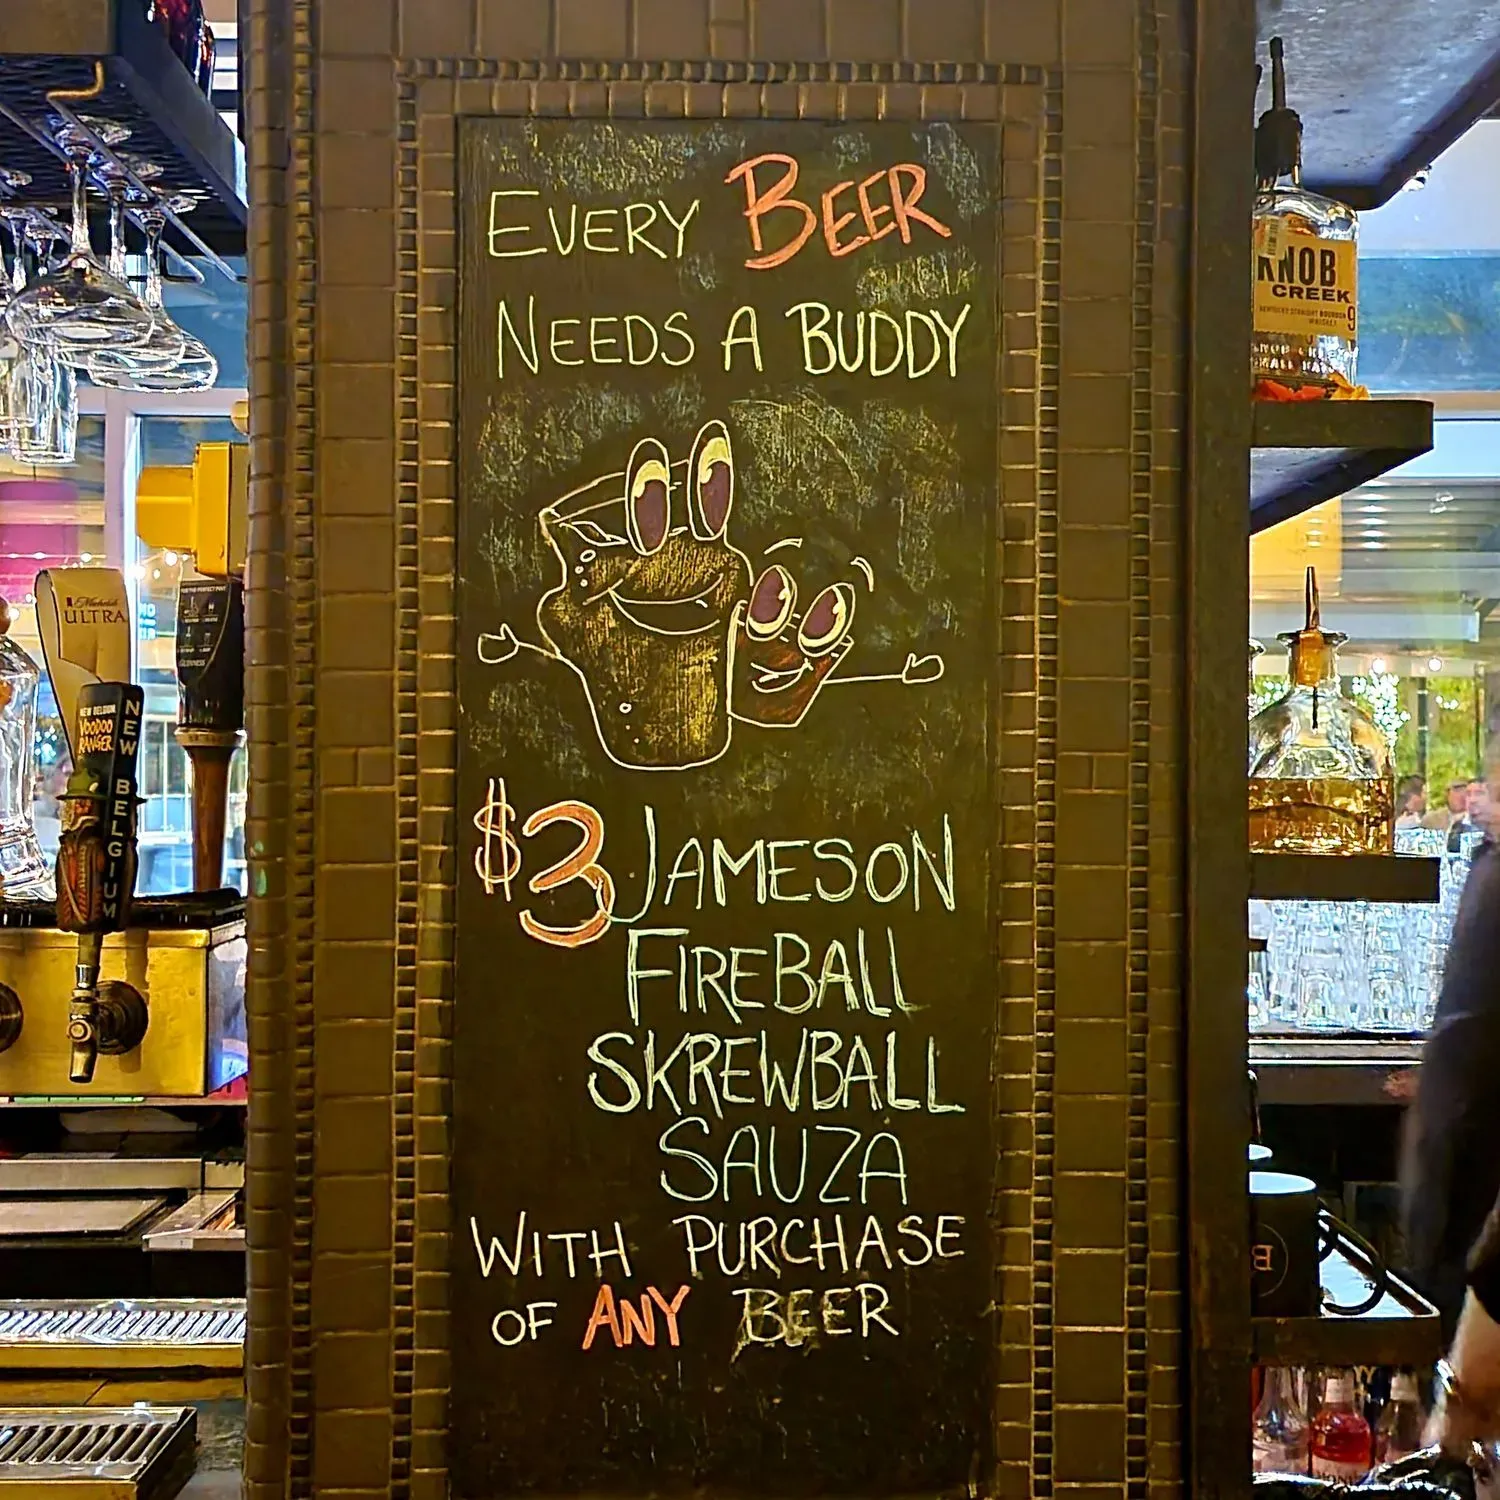 EVERY BEER
NEEDS A BUDDY
$3 JAMESON
FIREBALL
SKREWBALL
SAUZA
WITH PURCHASE
OF ANY BEER
Michelob
ULTRA
GUINNESS
NEW BELGIUM
VOODOO
RANGER
NEW BELGIUM
KNOB
CREEK
KENTUCKY STRAIGHT BOURBON
WHISKEY
9